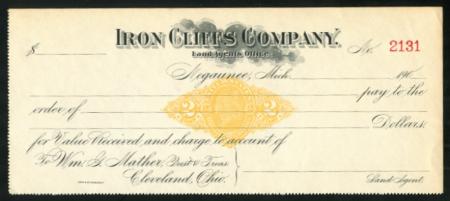 IRON CLIFFS COMPANY.
Land Agents Office.
$ No. 2131
Negaunee, Mich. 190
pay to the
order of
Dollars.
2 2
for Value Received and charge to account of
To Wm. G. Mather, Prest & Treas
Cleveland, Ohio.
Land Agent.